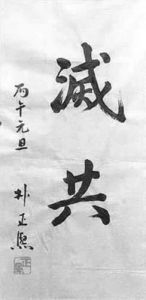 滅共
丙午元旦
朴正熙